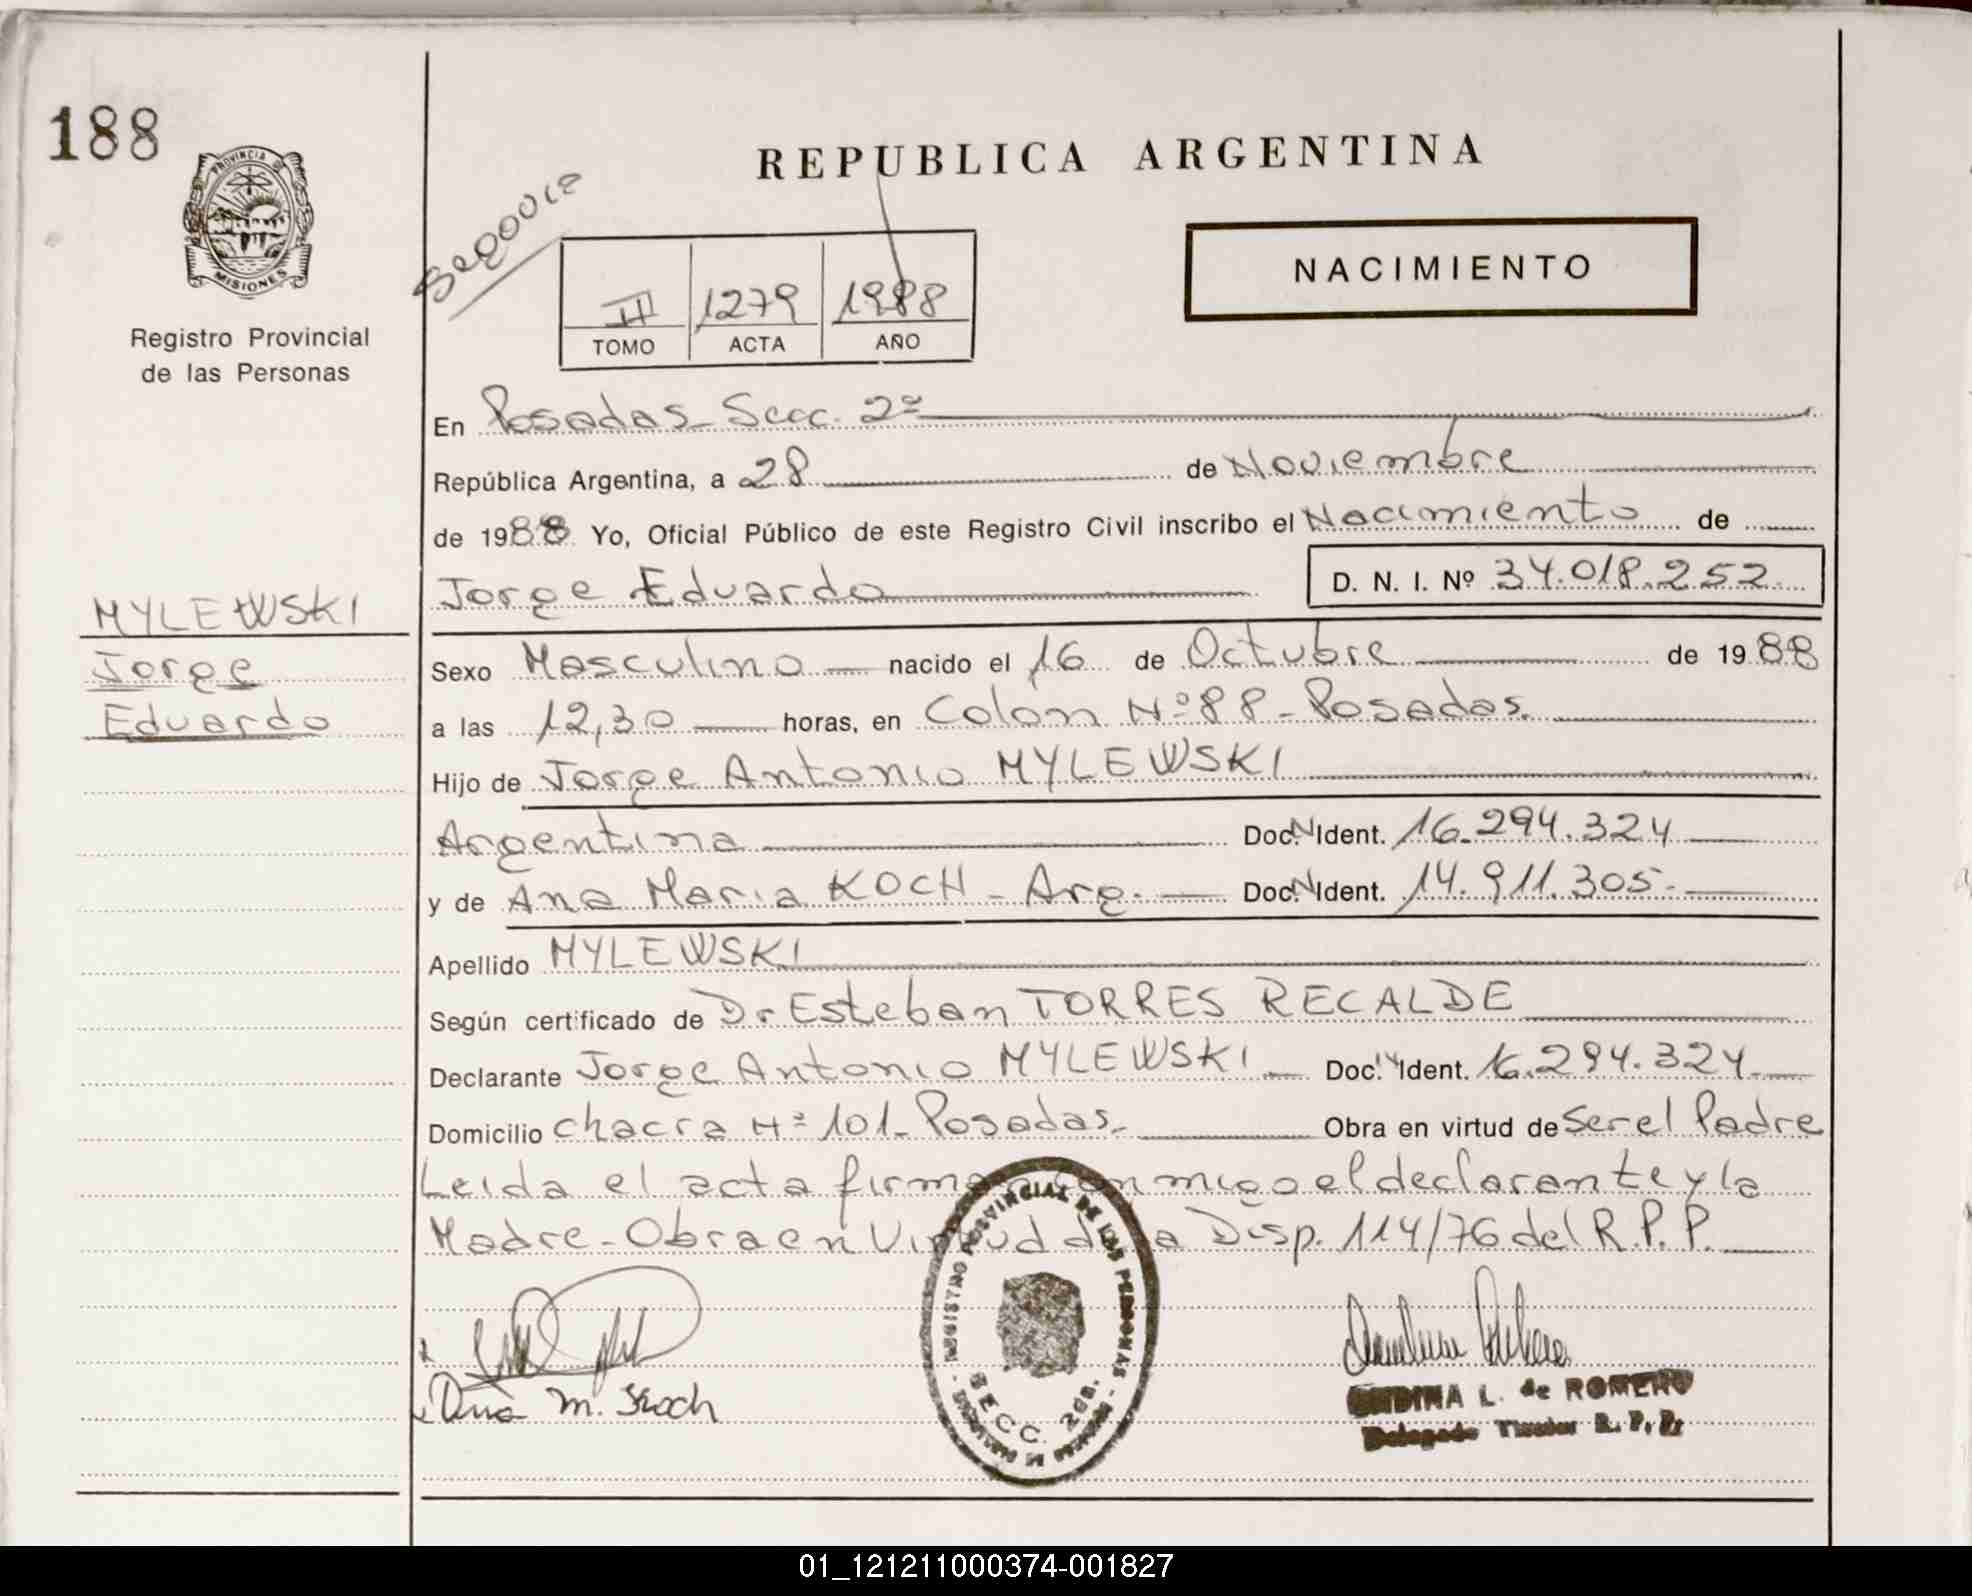 188
PROVINCIA DE
MISIONES
Registro Provincial
de las Personas
MYLEWSKI
Jorge
Eduardo
REPUBLICA ARGENTINA
NACIMIENTO
II 1279 1988
TOMO ACTA AÑO
En Posadas - Secc. 2ª
República Argentina, a 28 de Noviembre
de 1988 Yo, Oficial Público de este Registro Civil inscribo el Nacimiento de
Jorge Eduardo D. N. I. Nº 34.018.252
Sexo Masculino nacido el 16 de Octubre de 1988
a las 12,30 horas, en Colon Nº 88 - Posadas.
Hijo de Jorge Antonio MYLEWSKI
Argentina Doc. N Ident. 16.294.324
y de Ana Maria KOCH - Arg. Doc. N Ident. 14.911.305.
Apellido MYLEWSKI
Según certificado de Dr Esteban TORRES RECALDE
Declarante Jorge Antonio MYLEWSKI Doc. N Ident. 16.294.324
Domicilio chacra Nº 101 - Posadas. Obra en virtud de Ser el Padre
Leida el acta firman conmigo el declarante y la
Madre - Obra en Virtud de la Disp. 114/76 del R.P.P.
REGISTRO PROVINCIAL DE LAS PERSONAS
SECC. 2da.
Ana M. Koch
L. de ROMERO
Delegado Titular R. P. P.
01_121211000374-001827